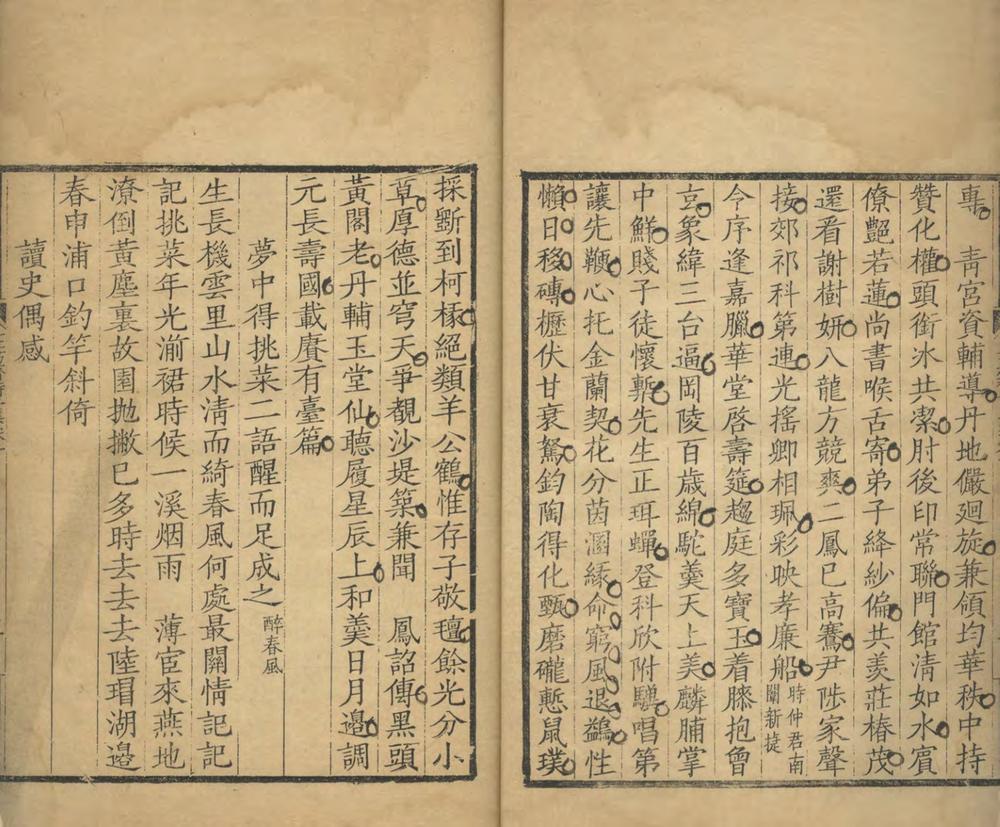 專　青宮資輔導丹地儼廻旋兼領均華秩中持
贊化權頭銜冰共潔肘後印常聯門館清如水賓
僚艷若蓮尚書喉舌寄弟子絳紗偏共羨莊椿茂
還看謝樹妍八龍方競爽二鳳已高騫尹陟家聲
接郊祁科第連光搖卿相珮彩映孝廉船時仲君南闈新捷
今序逢嘉臘華堂啓壽筵趨庭多寶玉着膝抱曾
玄象緯三台逼岡陵百歲綿駝羹天上美麟脯掌
中鮮賤子徒懷慙先生正珥蟬登科欣附驥唱第
讓先鞭心托金蘭契花分茵溷緣命窮風退鷁性
懶日移磚櫪伏甘衰駑鈞陶得化甄磨礲慙鼠璞
採斲到柯椽絕類羊公鶴惟存子敬氊餘光分小
草厚德並穹天爭覩沙堤築兼聞　鳳詔傳黑頭
黃閣老丹輔玉堂仙聽履星辰上和羹日月邊調
元長壽國載賡有臺篇
夢中得挑菜二語醒而足成之醉春風
生長機雲里山水清而綺春風何處最關情記記
記挑菜年光湔裙時候一溪烟雨　薄宦來燕地
潦倒黃塵裏故園抛撇已多時去去去陸瑁湖邊
春申浦口釣竿斜倚
讀史偶感